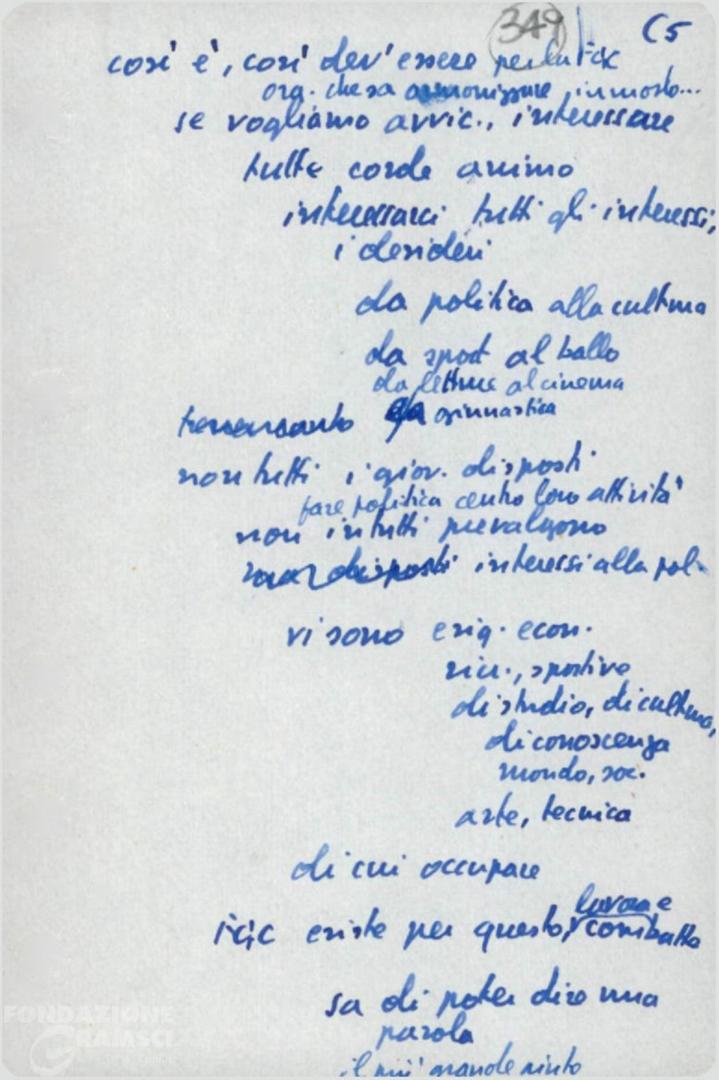 349 C5
così è, così dev'essere per la FGC
org. che sa armonizzare, in modo...
se vogliamo avvic., interessare
tutte corde animo
interessarci tutti gli interessi,
i desideri
da politica alla cultura
da sport al ballo
da letture al cinema
ginnastica
non tutti i giov. disposti
fare politica centro loro attività
non in tutti prevalgono
interessi alla pol.
vi sono esig. econ.
ricr., sportive
di studio, di cultura,
di conoscenza
mondo, soc.
arte, tecnica
di cui occupare
FGC esiste per questo, lavora e combatte
sa di poter dire una
parola
il più grande aiuto
FONDAZIONE
GRAMSCI